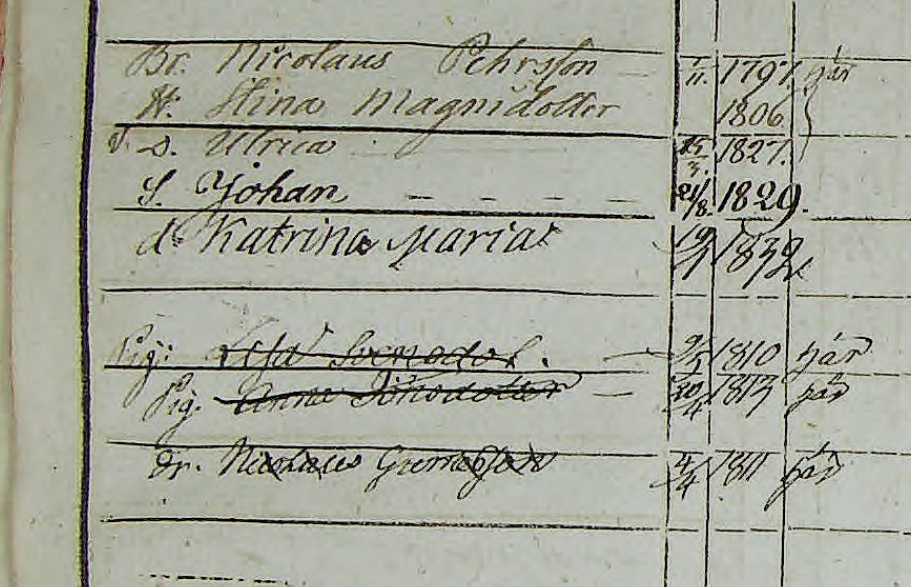 Br. Nicolaus Pehrsson 1/11. 1797. här
H. Stina Magnidotter 1806
d. Ulrica 15/3. 1827.
S. Johan 21/8. 1829.
d. Katrina Maria 19/7 1832
Pig: Lisa Svensdot. 9/5 1810 här
Pig. Anna Jönsdotter 30/4 1813 här
Dr. Nicolaus Gummesson 4/4 1811 här